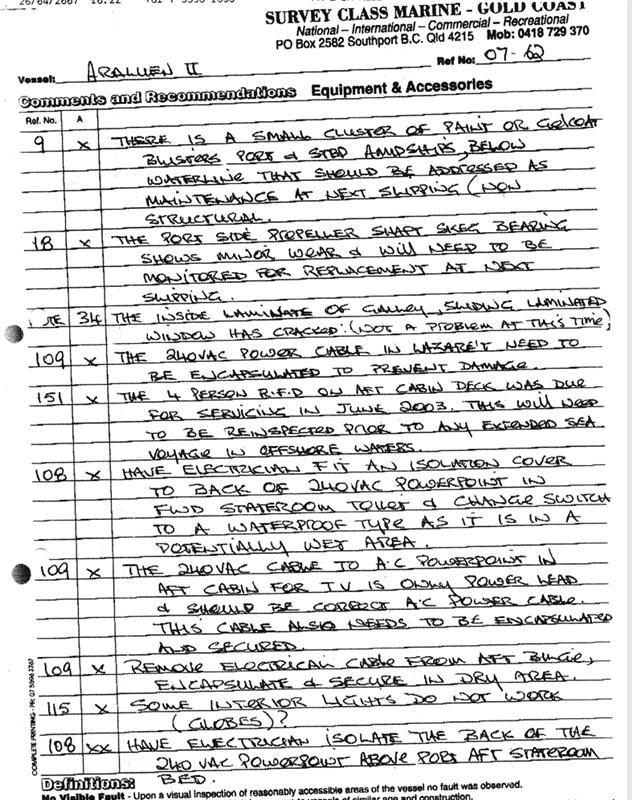 26/04/2007 16:22
SURVEY CLASS MARINE - GOLD COAST
National - International - Commercial - Recreational
PO Box 2582 Southport B.C. Qld 4215 Mob: 0418 729 370
Ref No: 07-62
Vessel: ARALUEN II
Comments and Recommendations Equipment & Accessories
Ref. No. A
9 X THERE IS A SMALL CLUSTER OF PAINT OR GELCOAT
BLISTERS PORT & STBD AMIDSHIPS, BELOW
WATERLINE THAT SHOULD BE ADDRESSED AS
MAINTENANCE AT NEXT SLIPPING (NON
STRUCTURAL.
18 X THE PORT SIDE PROPELLER SHAFT SKEG BEARING
SHOWS MINOR WEAR & WILL NEED TO BE
MONITORED FOR REPLACEMENT AT NEXT
SLIPPING.
34 THE INSIDE LAMINATE OF GALLEY, SLIDING LAMINATED
WINDOW HAS CRACKED. (NOT A PROBLEM AT THIS TIME)
109 X THE 240VAC POWER CABLE IN LAZARET NEED TO
BE ENCAPSULATED TO PREVENT DAMAGE.
151 X THE 4 PERSON R.F.D ON AFT CABIN DECK WAS DUE
FOR SERVICING IN JUNE 2003. THIS WILL NEED
TO BE REINSPECTED PRIOR TO ANY EXTENDED SEA
VOYAGE IN OFFSHORE WATERS.
108 X HAVE ELECTRICIAN FIT AN ISOLATION COVER
TO BACK OF 240VAC POWERPOINT IN
FWD STATEROOM TOILET & CHANGE SWITCH
TO A WATERPROOF TYPE AS IT IS IN A
POTENTIALLY WET AREA.
109 X THE 240VAC CABLE TO A.C POWERPOINT IN
AFT CABIN FOR T.V IS ONLY POWER LEAD
& SHOULD BE CORRECT A.C POWER CABLE.
THIS CABLE ALSO NEEDS TO BE ENCAPSULATED
AND SECURED.
109 X REMOVE ELECTRICAL CABLE FROM AFT BILGE,
ENCAPSULATE & SECURE IN DRY AREA.
115 X SOME INTERIOR LIGHTS DO NOT WORK
(GLOBES)?
108 XX HAVE ELECTRICIAN ISOLATE THE BACK OF THE
240 VAC POWERPOINT ABOVE PORT AFT STATEROOM
BED.
COMPLETE PRINTING - PH: 07 5596 3767
Definitions:
No Visible Fault - Upon a visual inspection of reasonably accessible areas of the vessel no fault was observed.